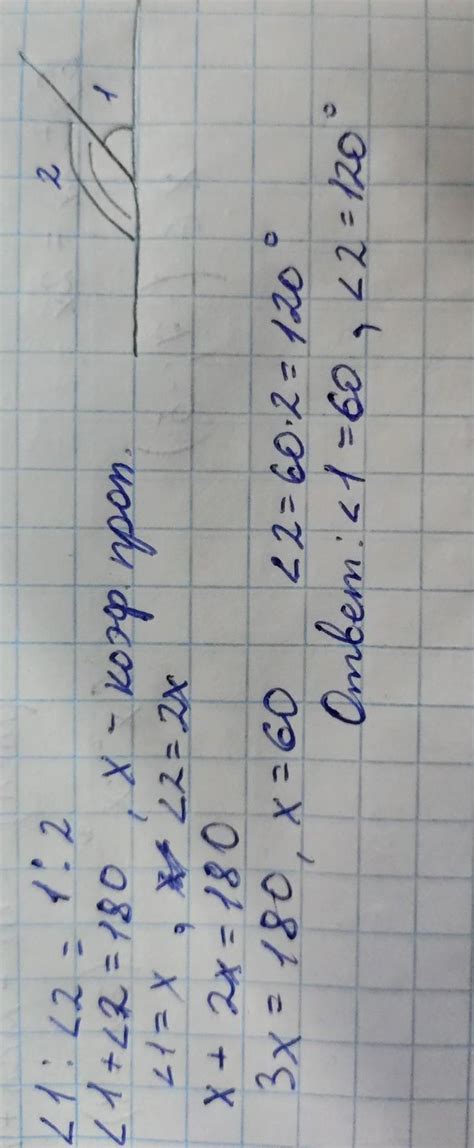 ∠1 : ∠2 = 1 : 2
∠1 + ∠2 = 180, x - коэф. проп.
∠1 = x, ∠2 = 2x
x + 2x = 180
3x = 180, x = 60 ∠2 = 60·2 = 120°
Ответ: ∠1 = 60, ∠2 = 120°
2
1